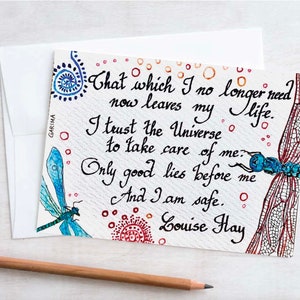 That which I no longer need
now leaves my life.
I trust the Universe
to take care of me.
Only good lies before me
And I am safe.
Louise Hay
GARIMA